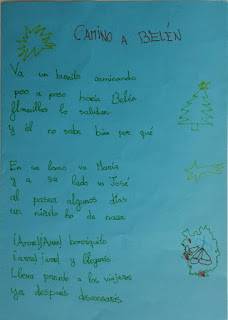 CAMINO A BELÉN
Va un burrito caminando
paso a paso hacia Belén
florecillas lo saludan
y él no sabe bien por qué
En su lomo va María
y a su lado va José
al pasar algunos días
un niñito ha de nacer
¡Arre! ¡Arre! borriquito
¡arre! ¡arre! y llegarás
Lleva pronto a los viajeros
ya después descansarás